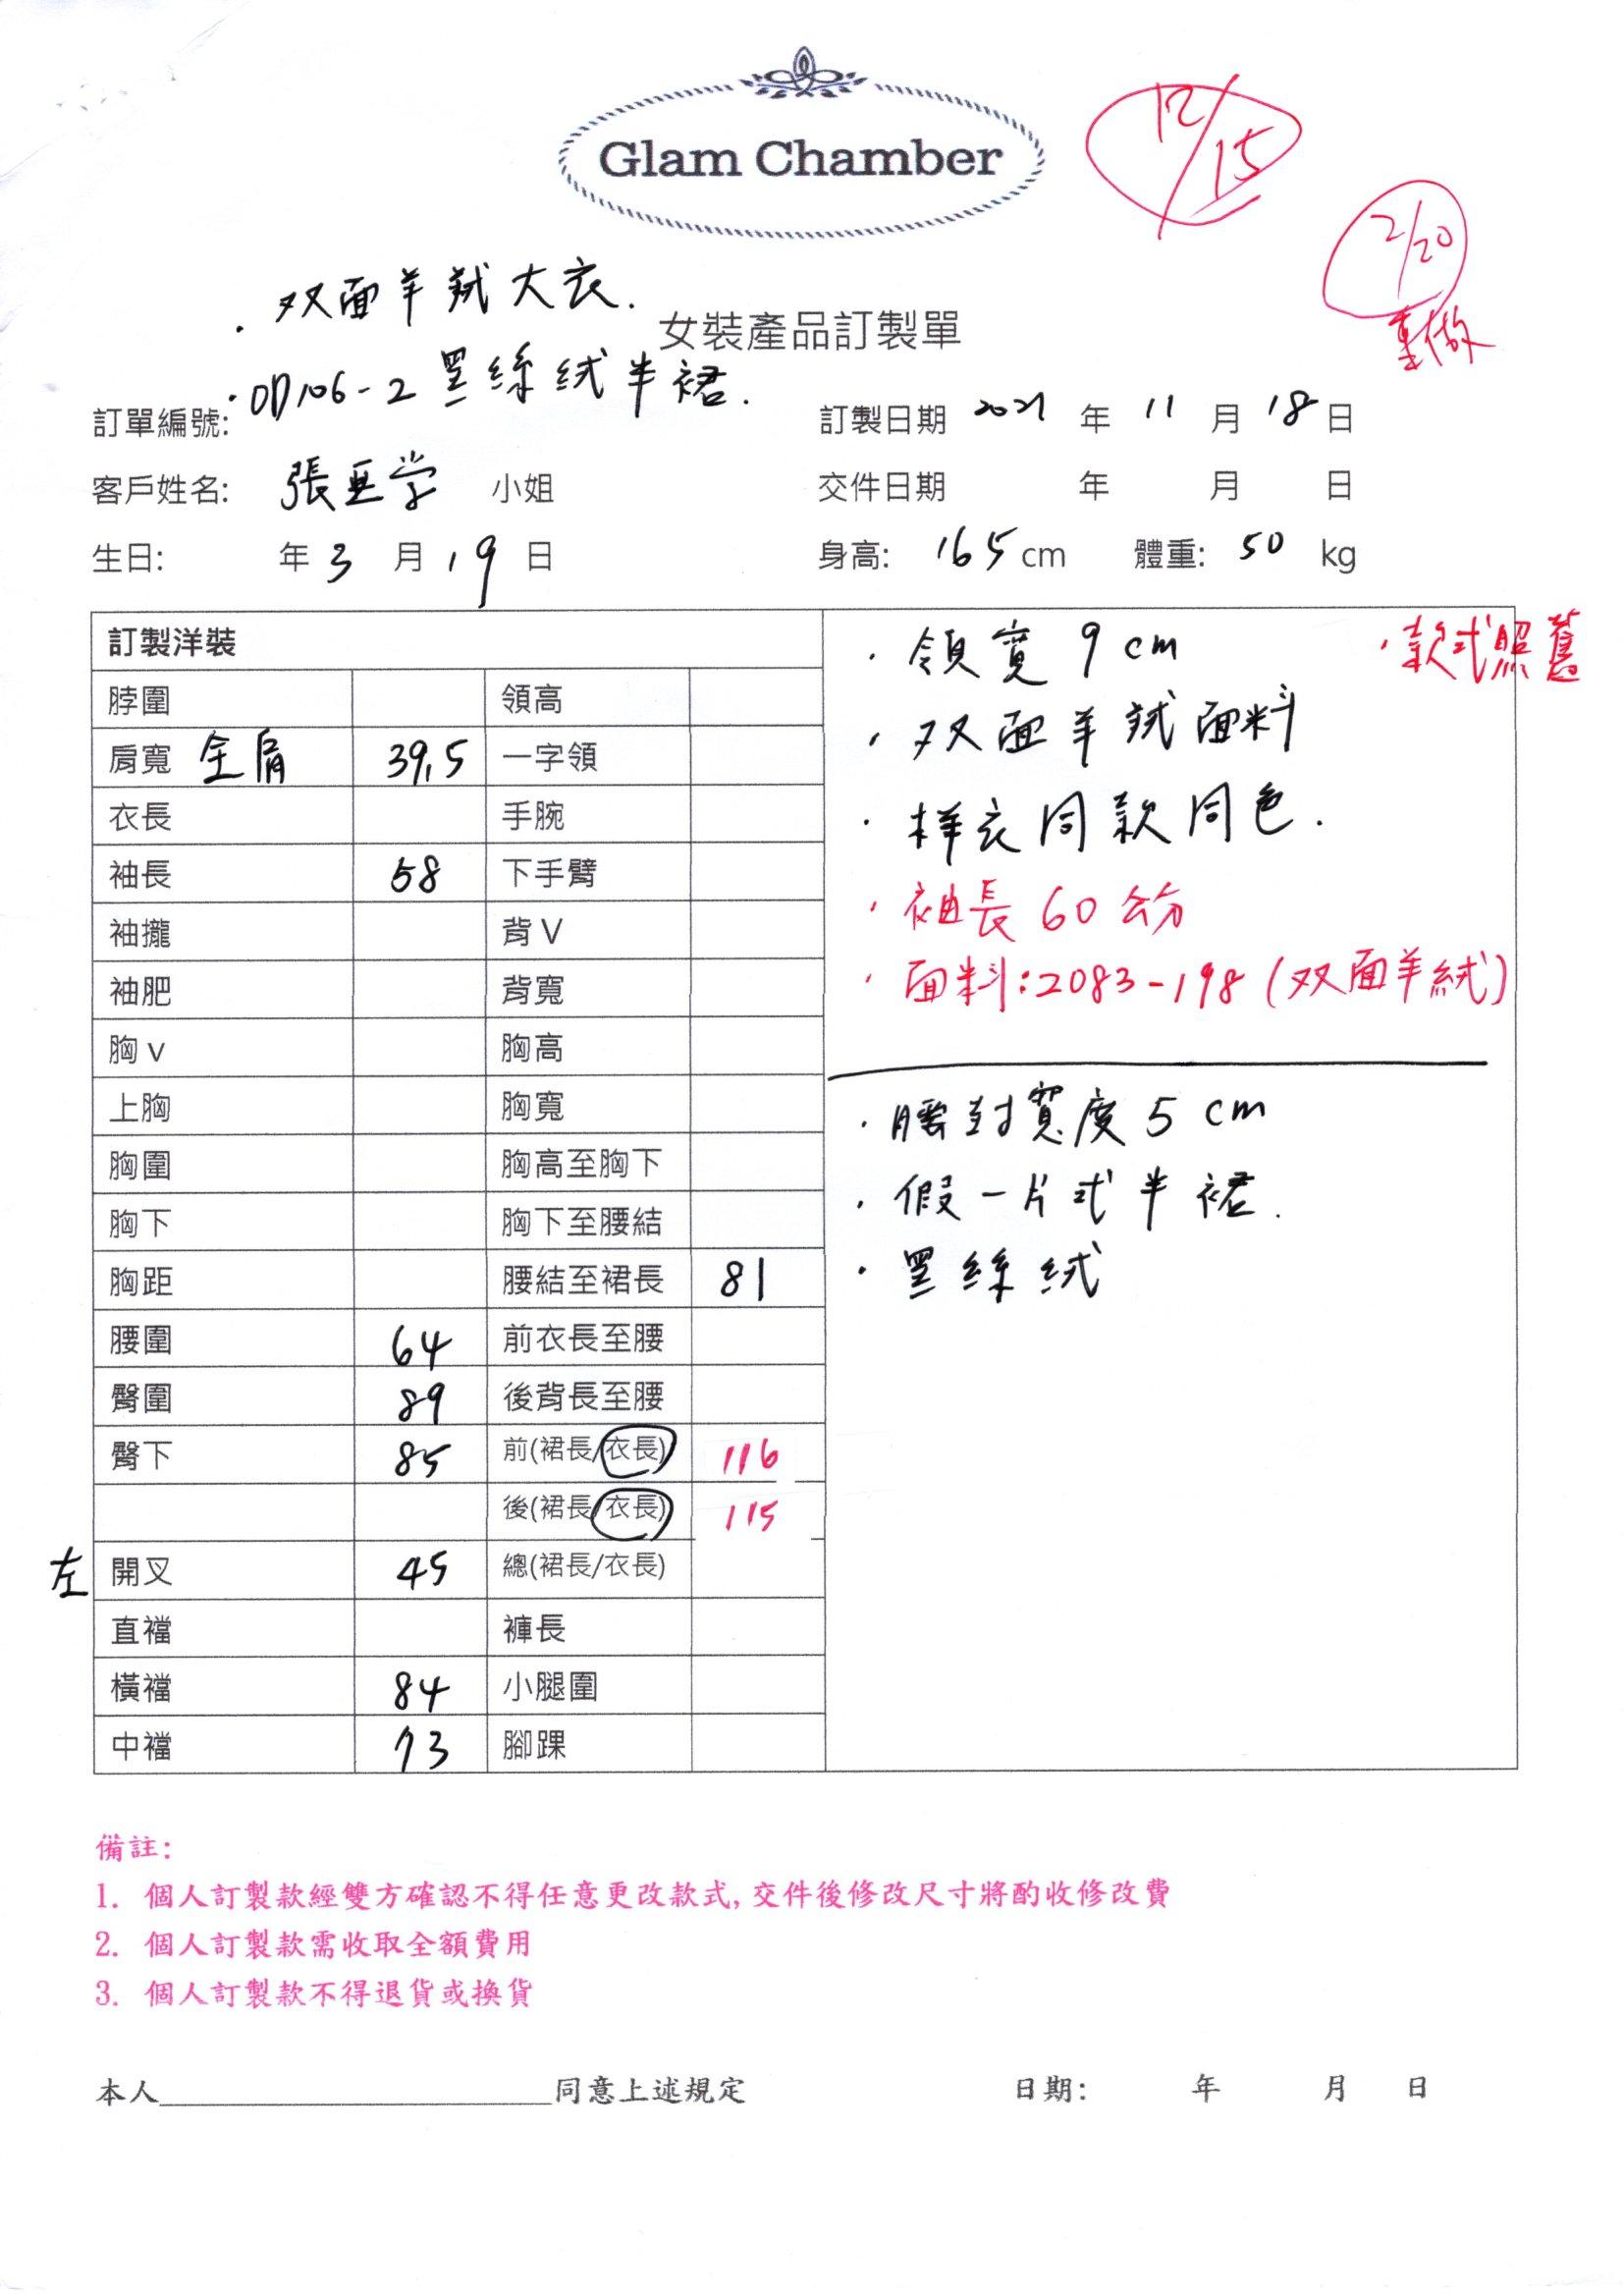 Glam Chamber
12/15
2/20
重做
·双面羊絨大衣.
女裝產品訂製單
·OD106-2 黑絲絨半裙.
訂單編號:
訂製日期 2021 年 11 月 18 日
客戶姓名: 張亚学 小姐
交件日期 年 月 日
生日: 年 3 月 19 日
身高: 165 cm 體重: 50 kg
訂製洋裝
脖圍 領高
肩寬 全肩 39.5 一字領
衣長 手腕
袖長 58 下手臂
袖攏 背V
袖肥 背寬
胸v 胸高
上胸 胸寬
胸圍 胸高至胸下
胸下 胸下至腰結
胸距 腰結至裙長 81
腰圍 64 前衣長至腰
臀圍 89 後背長至腰
臀下 85 前(裙長/衣長) 116
後(裙長/衣長) 115
左 開叉 45 總(裙長/衣長)
直襠 褲長
橫襠 84 小腿圍
中襠 73 腳踝
·領寬 9 cm
·款式照舊
·双面羊絨面料
·样衣同款同色.
·袖長 60 公分
·面料:2083-198 (双面羊絨)
·腰封寬度 5 cm
·假一片式半裙.
·黑絲絨
備註:
1. 個人訂製款經雙方確認不得任意更改款式,交件後修改尺寸將酌收修改費
2. 個人訂製款需收取全額費用
3. 個人訂製款不得退貨或換貨
本人____________同意上述規定 日期: 年 月 日